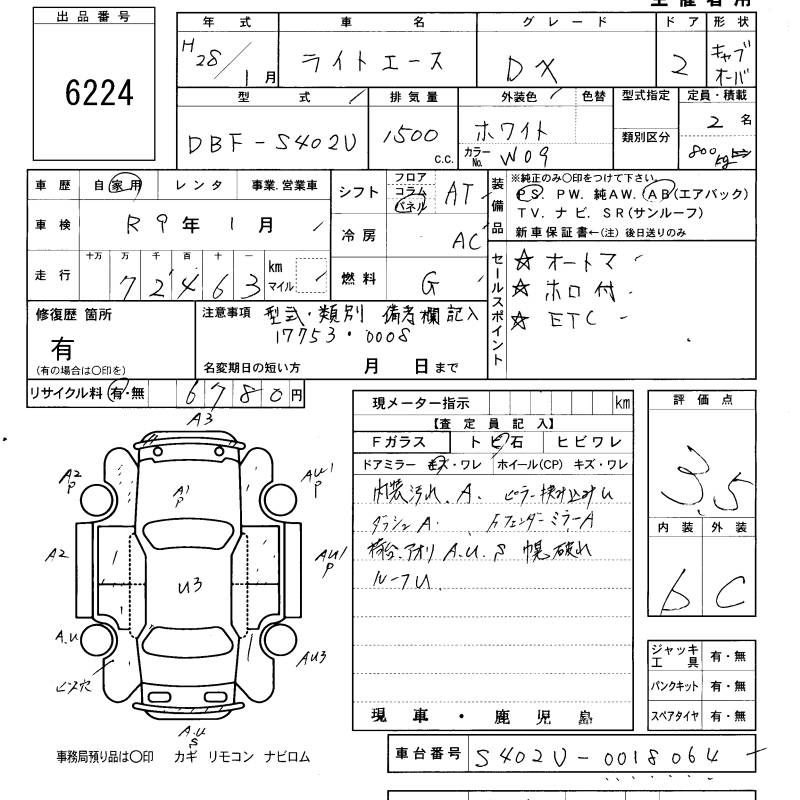 出品番号
6224
年式 車名 グレード ドア 形状
H28/1月 ライトエース DX 2 キャブオーバ
型式 排気量 外装色 色替 型式指定 定員・積載
DBF-S402U 1500 C.C. ホワイト 類別区分 2名
カラーNo. W09 800kg
車歴 自家用 レンタ 事業.営業車 シフト フロア コラム パネル AT
装備品 ※純正のみ〇印をつけて下さい
PS. PW. 純AW. AB(エアバック)
TV. ナビ. SR(サンルーフ)
新車保証書←(注) 後日送りのみ
車検 R9年1月 冷房 AC
走行 十万 万 千 百 十 一
72463 km マイル 燃料 G
セールスポイント
☆ オートマ
☆ ホロ付
☆ ETC
修復歴 箇所
有
(有の場合は〇印を)
注意事項 型式・類別 備考欄記入
17753・0008
名変期日の短い方 月 日まで
リサイクル料 有・無 6780円
現メーター指示 km
【査定員記入】
Fガラス トビ石 ヒビワレ
ドアミラー キズ・ワレ ホイール(CP) キズ・ワレ
内装汚れ. A. ピラー
ダッシュA. Fフェンダーミラー A
荷台.アオリ A.U.S 幌破れ
ルーフU.
現車・鹿児島
評価点
3.5
内装 外装
b C
ジャッキ工具 有・無
パンクキット 有・無
スペアタイヤ 有・無
A3
A2 P
A1 P
AU1 P
A2
U3
AU1 P
A.U
AU3
ビス穴
A.U S
事務局預り品は〇印 カギ リモコン ナビロム
車台番号 S402U-0018064